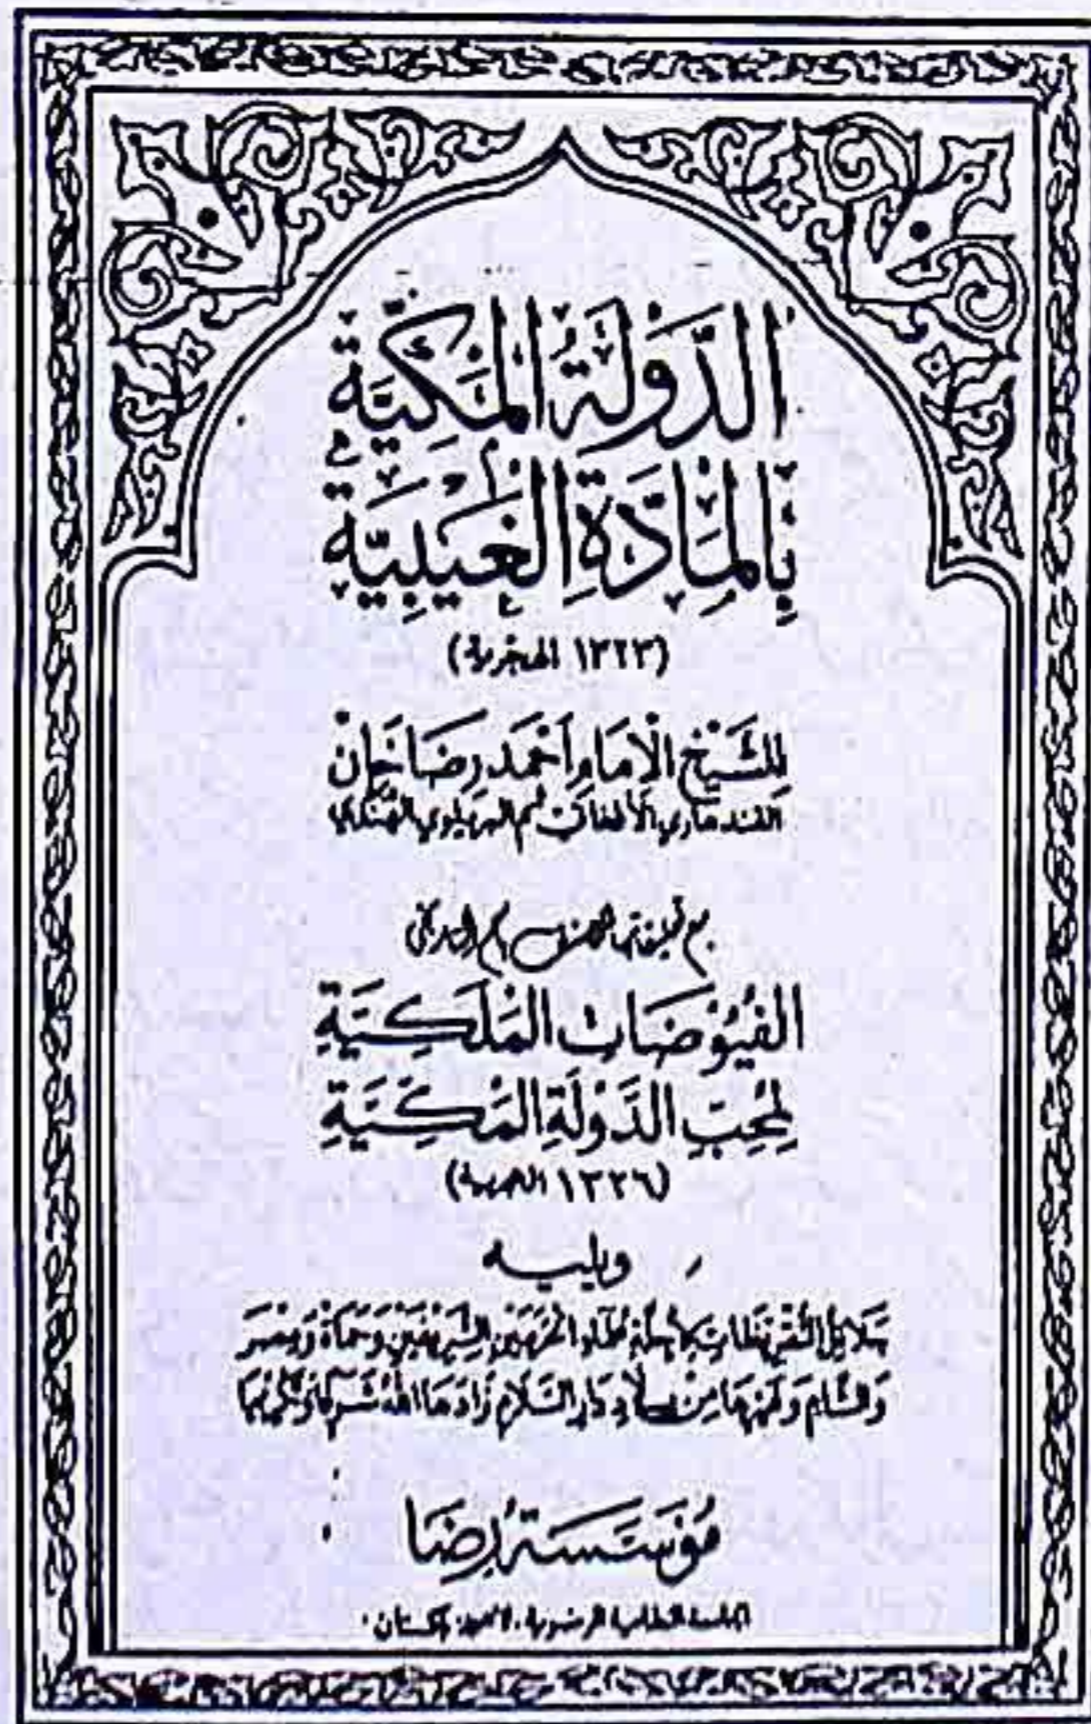 الدَّوْلَةُ الْمَكِّيَّةُ
بِالْمَادَّةِ الْغَيْبِيَّةِ
(١٣٢٣ الهجرية)
لِلشَّيْخِ الْإِمَامِ أَحْمَد رِضَا خَانْ
القندهاري الأفغاني ثم البريلوي الهندي
مع
الفُيُوضَات الْمَلَكِيَّةِ
لِمُحِبِّ الدَّوْلَةِ الْمَكِّيَّةِ
(١٣٢٦ الهجرية)
ويليه
الْحَرَمَيْنِ الشَّرِيفَيْنِ وَحَمَاة وَمِصْرَ
وَالشَّام وَغَيْرِهَا مِنْ بِلَادِ دَارِ السَّلَامِ زَادَهَا اللهُ شَرَفًا وَتَكْرِيمًا
مُؤَسَّسَة رِضَا
الجامعة النظامية الرضوية، لاهور باكستان